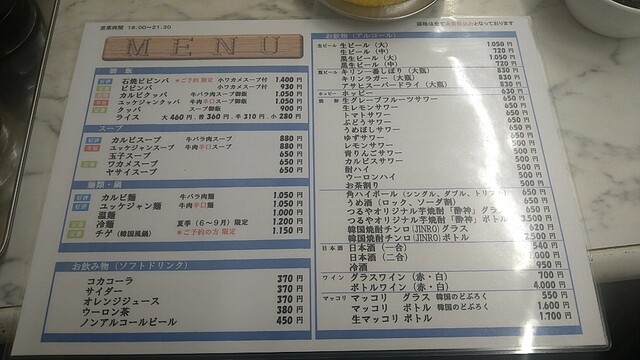 営業時間 16:00～21:30
価格は全て消費税込みとなっております
MENU
御飯
石焼ビビンバ ＊ご予約 限定 小ワカメスープ付 1.400 円
ビビンバ 小ワカメスープ付 930 円
カルビクッパ 牛バラ肉スープ御飯 1.050 円
ユッケジャンクッパ 牛肉辛口スープ御飯 1.050 円
クッパ スープ御飯 900 円
ライス 大 460 円、普 360 円、半 310 円、小 280 円
スープ
カルビスープ 牛バラ肉スープ 880 円
ユッケジャンスープ 牛肉辛口スープ 880 円
玉子スープ 650 円
ワカメスープ 650 円
ヤサイスープ 650 円
麺類・鍋
カルビ麺 牛バラ肉麺 1.050 円
ユッケジャン麺 牛肉辛口麺 1.050 円
温麺 1.000 円
冷麺 夏季（6～9月）限定 1.200 円
チゲ（韓国風鍋） ＊ご予約の方 限定 1.150 円
お飲み物（ソフトドリンク）
コカコーラ 370 円
サイダー 370 円
オレンジジュース 370 円
ウーロン茶 380 円
ノンアルコールビール 450 円
お飲物（アルコール）
生ビール 生ビール（大） 1.050 円
生ビール（中） 720 円
黒生ビール（大） 1.050 円
黒生ビール（中） 720 円
瓶ビール キリン一番しぼり（大瓶） 830 円
キリンラガー（大瓶） 830 円
アサヒスーパードライ（大瓶） 830 円
ホッピー ホッピー 650 円
焼酎 生グレープフルーツサワー 650 円
生レモンサワー 650 円
トマトサワー 650 円
ぶどうサワー 650 円
うめぼしサワー 650 円
ゆずサワー
レモンサワー 500 円
青りんごサワー 500 円
カルピスサワー 500 円
酎ハイ 500 円
ウーロンハイ 500 円
お茶割り 500 円
角ハイボール（シングル、ダブル、
うめ酒（ロック、ソーダ割） 650 円
つるやオリジナル芋焼酎「酔神」グラス
つるやオリジナル芋焼酎「酔神」ボトル 3.500 円
韓国焼酎チンロ(JINRO)グラス 620 円
韓国焼酎チンロ(JINRO)ボトル 2.500 円
日本酒 日本酒（一合） 540 円
日本酒（二合） 1.000 円
冷酒 950 円
ワイン グラスワイン（赤・白） 700 円
ボトルワイン（赤・白） 4.000 円
マッコリ マッコリ グラス 韓国のどぶろく 550 円
マッコリ ボトル 韓国のどぶろく 1.600 円
生マッコリ ボトル 1.700 円